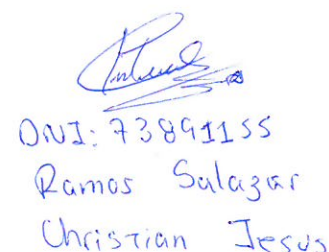 DNI: 73891155
Ramos Salazar
Christian Jesus